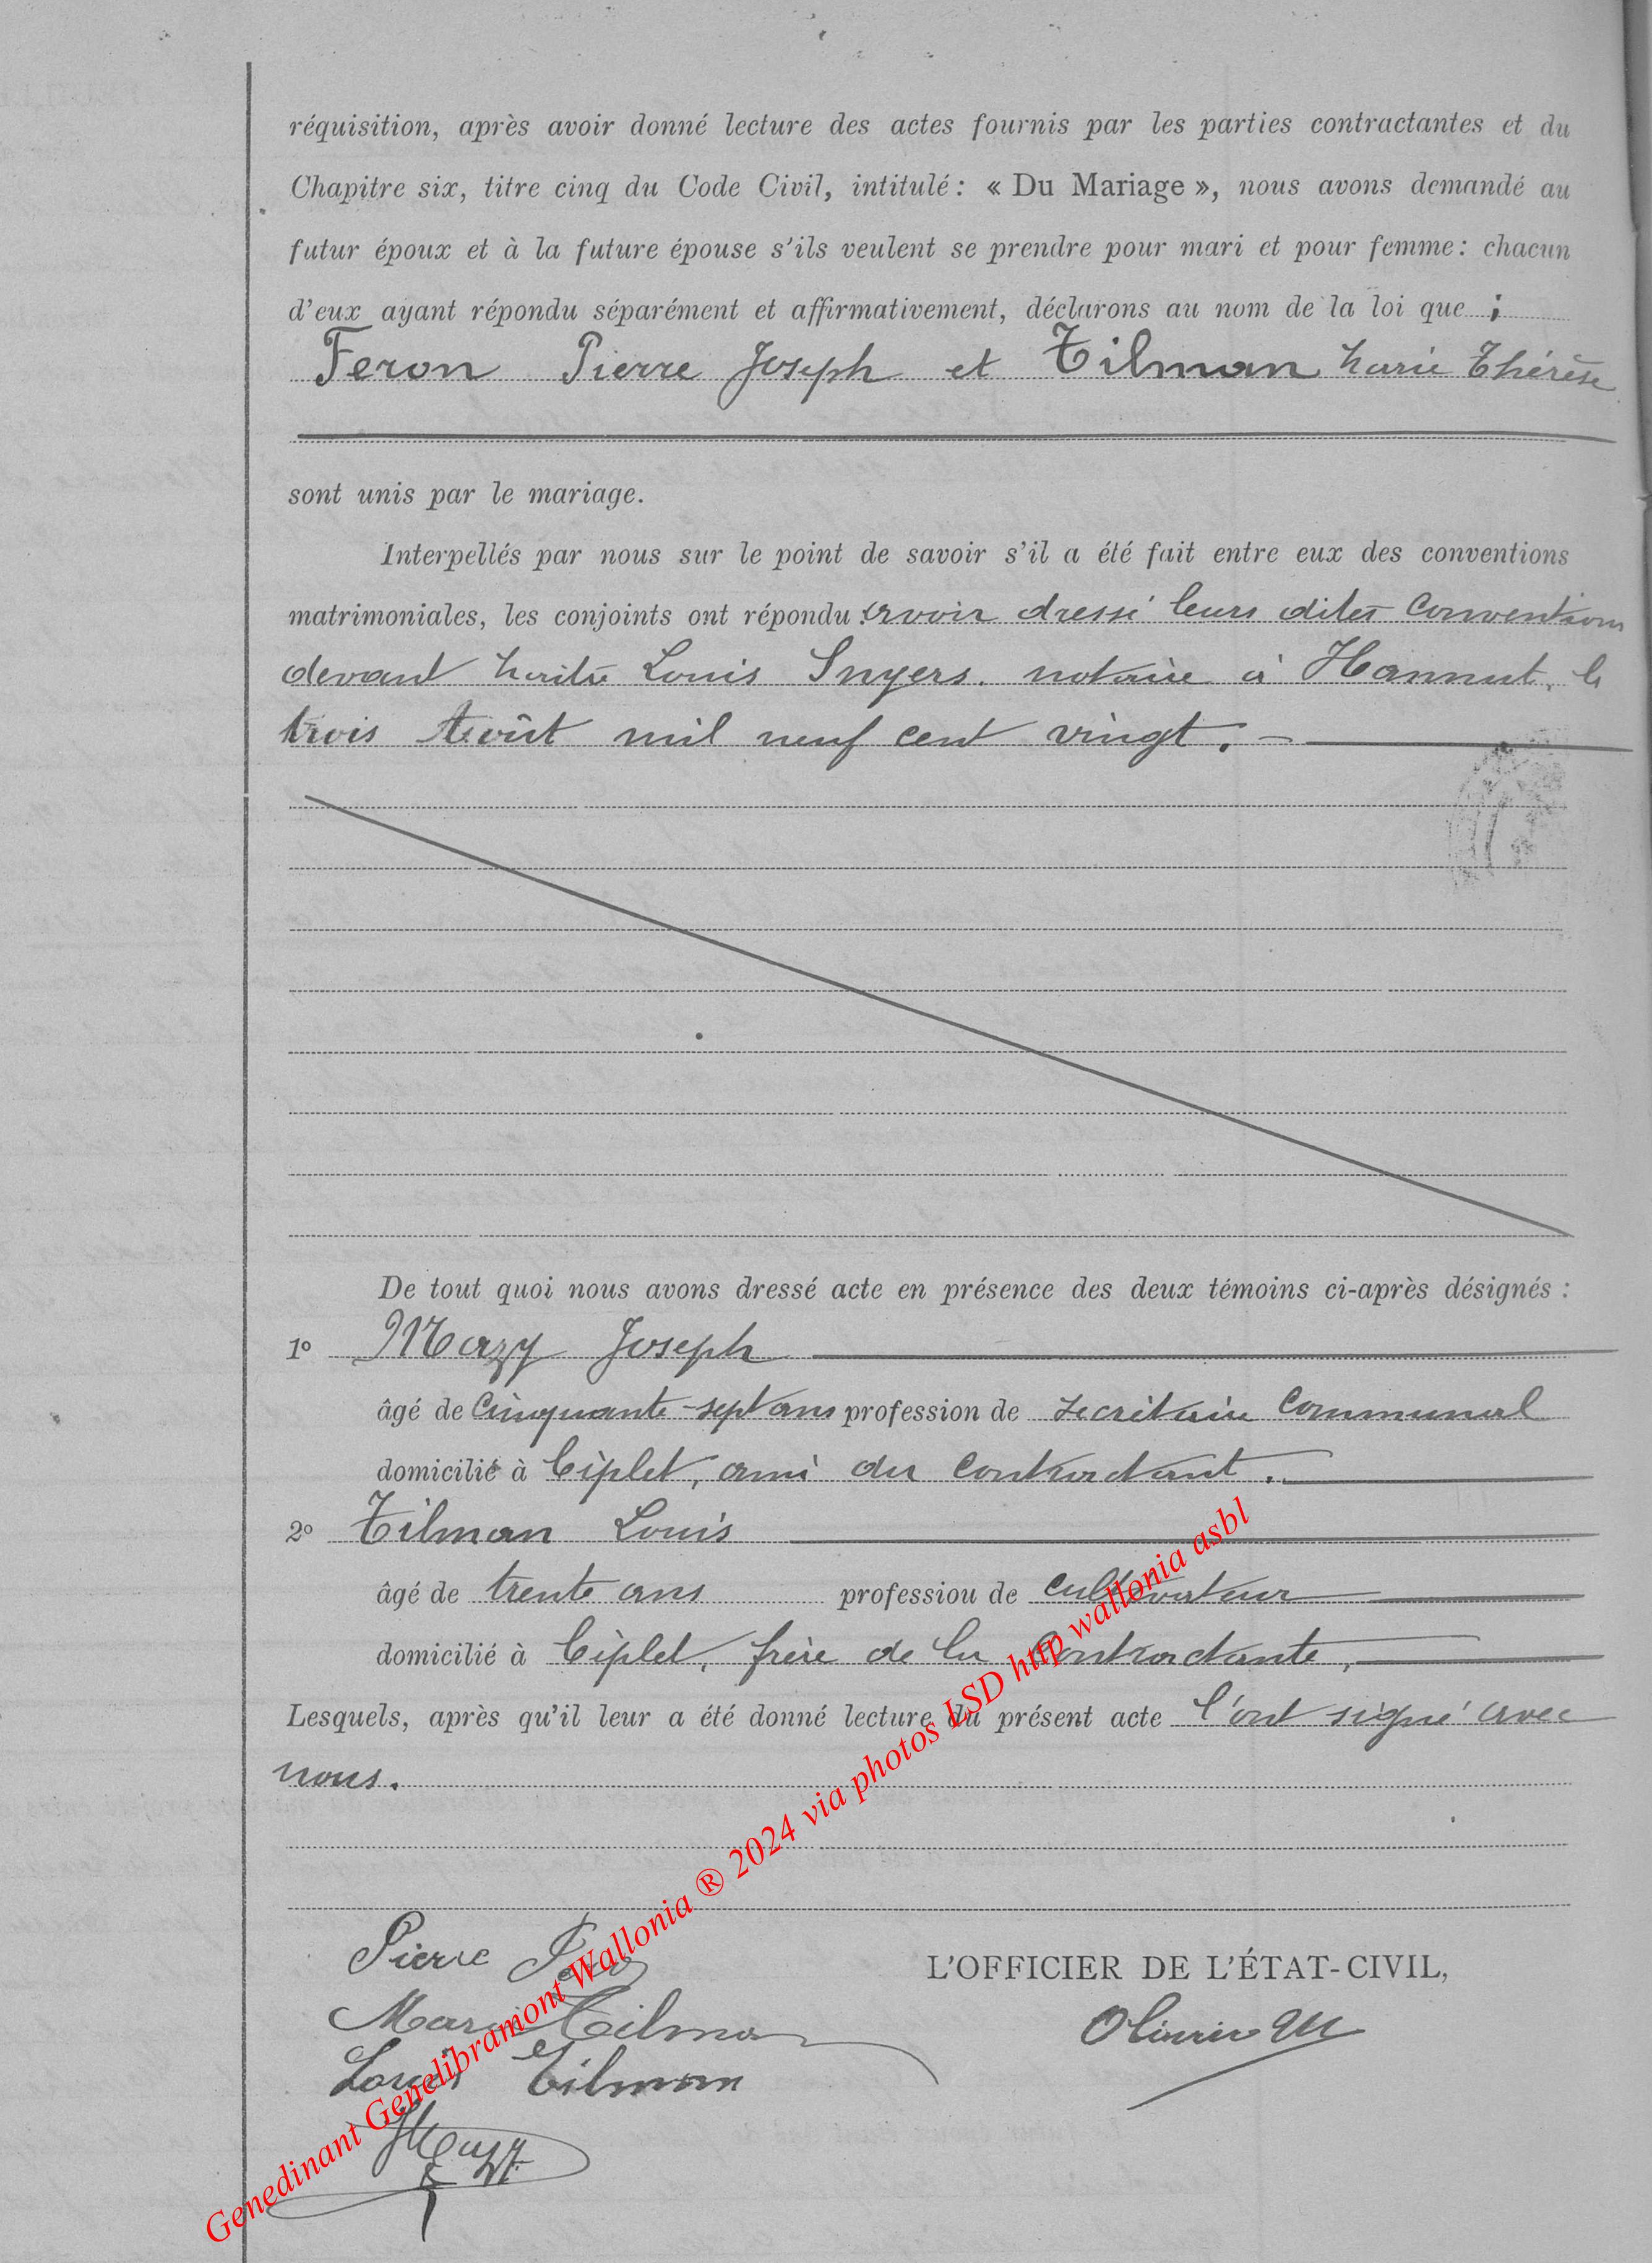 réquisition, après avoir donné lecture des actes fournis par les parties contractantes et du
Chapitre six, titre cinq du Code Civil, intitulé : « Du Mariage », nous avons demandé au
futur époux et à la future épouse s'ils veulent se prendre pour mari et pour femme : chacun
d'eux ayant répondu séparément et affirmativement, déclarons au nom de la loi que ;
Feron Pierre Joseph et Tilman Marie Thérèse
sont unis par le mariage.
Interpellés par nous sur le point de savoir s'il a été fait entre eux des conventions
matrimoniales, les conjoints ont répondu : avoir dressé leurs dites conventions
devant Maître Louis Snyers. notaire à Hannut, le
trois Août mil neuf cent vingt. -
De tout quoi nous avons dressé acte en présence des deux témoins ci-après désignés :
1º Mazy Joseph
âgé de cinquante-sept ans profession de secrétaire communal
domicilié à Ciplet, ami du contractant.
2º Tilman Louis
âgé de trente ans professiou de cultivateur
domicilié à Ciplet, frère de la contractante,
Lesquels, après qu'il leur a été donné lecture du présent acte l'ont signé avec
nous.
Pierre
L'OFFICIER DE L'ÉTAT-CIVIL,
Marie Tilman
Louis Tilman
Mazy
Genedinant Genelibramont Wallonia ® 2024 via photos LSD http wallonia asbl